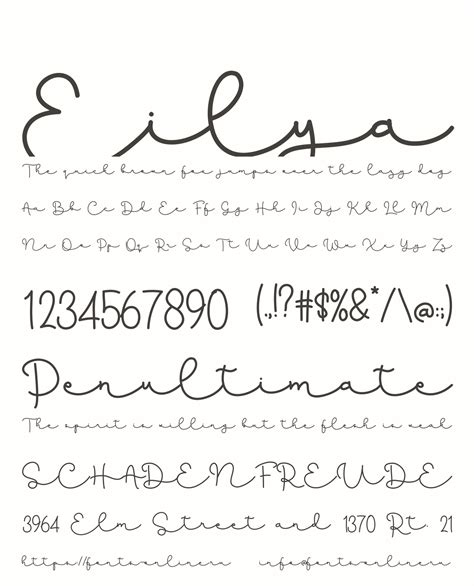 Eilya
The quick brown fox jumps over the lazy dog
Aa Bb Cc Dd Ee Ff Gg Hh Ii Jj Kk Ll Mm
Nn Oo Pp Qq Rr Ss Tt Uu Vv Ww Xx Yy Zz
1234567890 (.,!?#$%&*/\@:;)
Penultimate
The spirit is willing but the flesh is weak
SCHADENFREUDE
3964 Elm Street and 1370 Rt. 21